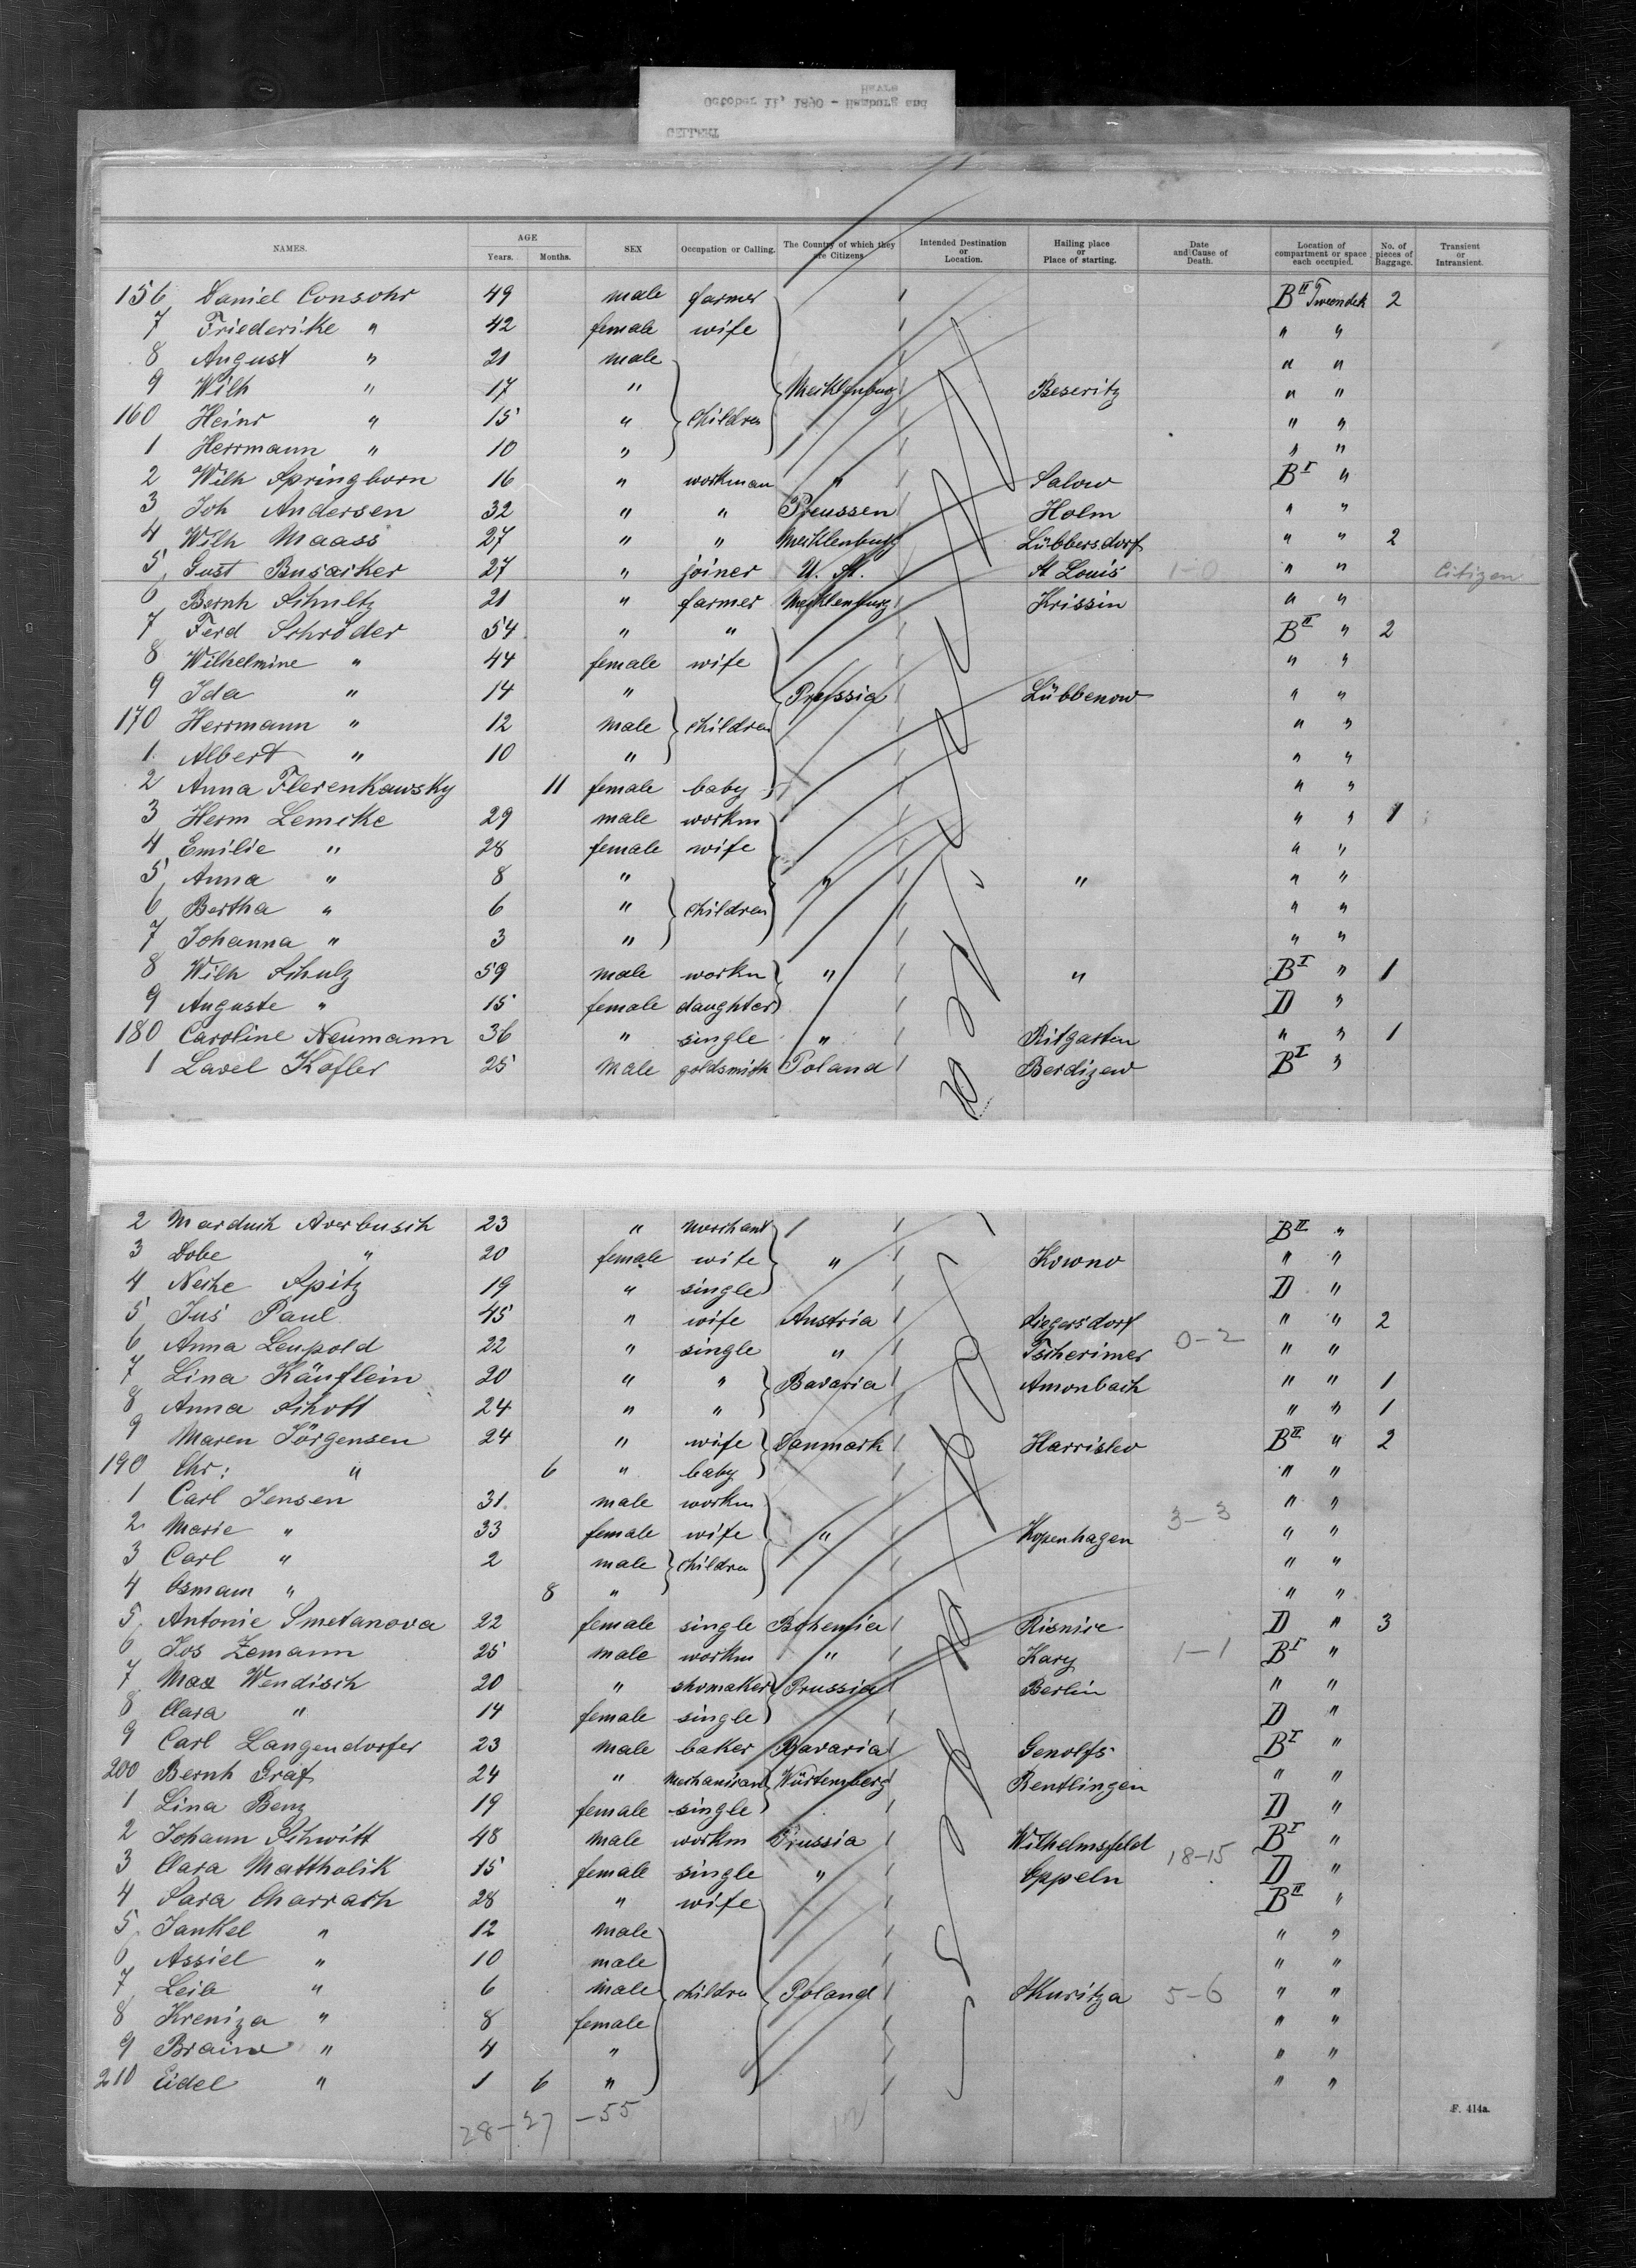 GELLERT
October 11, 1890 - Hamburg and
Havre
NAMES. AGE Years. Months. SEX Occupation or Calling. The Country of which they are Citizens Intended Destination or Location. Hailing place or Place of starting. Date and Cause of Death. Location of compartment or space each occupied. No. of pieces of Baggage. Transient or Intransient.
156 Daniel Consohr 49 male farmer B II Tweendek 2
7 Friederike " 42 female wife " "
8 August " 21 male " "
9 Wilh " 17 " Mecklenburg Beseritz " "
160 Heinr " 15 " children " "
1 Herrmann " 10 " " "
2 Wilh Springborn 16 " workman " Salow B I "
3 Joh Andersen 32 " " Preussen Holm " "
4 Wilh Maass 27 " " Mecklenburg Lübbersdorf " " 2
5 Gust Busacker 27 " joiner U. St. St Louis 1-0 " " Citizen
6 Bernh Schultz 21 " farmer Mecklenburg Krissin " "
7 Ferd Schröder 54 " " B II " 2
8 Wilhelmine " 44 female wife " "
9 Ida " 14 " Prussia Lübbenow " "
170 Herrmann " 12 male children " "
1 Albert " 10 " " "
2 Anna Flerenkawsky 11 female baby " "
3 Herm Lemcke 29 male workm " " 1
4 Emilie " 28 female wife " "
5 Anna " 8 " " " " "
6 Bertha " 6 " children " "
7 Johanna " 3 " " "
8 Wilh Schulz 59 male workm " " B I " 1
9 Auguste " 15 female daughter D "
180 Caroline Neumann 36 " single " Ritgarten " " 1
1 Lavel Kofler 25 male goldsmith Poland Berdizew B I "
2 Marduch Averbusch 23 " merchant B II "
3 Dobe " 20 female wife " Kowno " "
4 Neche Apitz 19 " single D "
5 Jus Paul 45 " wife Austria Siegersdorf " " 2
6 Anna Leupold 22 " single " Tscherimer 0-2 " "
7 Lina Käuflein 20 " " Bavaria Amonbach " " 1
8 Anna Schott 24 " " " " 1
9 Maren Jörgensen 24 " wife Danmark Harrislev B II " 2
190 Chr: " 6 " baby " "
1 Carl Jensen 31 male workm " "
2 Marie " 33 female wife " Kopenhagen 3-3 " "
3 Carl " 2 male children " "
4 Osmam " 8 " " "
5 Antonie Smetanova 22 female single Bohemia Risnice D " 3
6 Jos Zemann 25 male workm " Kary 1-1 B I "
7 Max Wendisch 20 " shomaker Prussia Berlin " "
8 Clara " 14 female single D "
9 Carl Langendorfer 23 male baker Bavaria Genolfs B I "
200 Bernh Graf 24 " mechanican Würtemberg Rentlingen " "
1 Lina Benz 19 female single D "
2 Johann Schwitt 48 male workm Prussia Wilhelmsfeld B I "
3 Clara Mattholik 15 female single " Oppeln 18-15 D "
4 Sara Charrach 28 " wife B II "
5 Jankel " 12 male " "
6 Assiel " 10 male " "
7 Leib " 6 male children Poland Skuritza 5-6 " "
8 Kreniza " 8 female " "
9 Braine " 4 " " "
210 Eidel " 1 6 " " "
28-27-55
F. 414a.